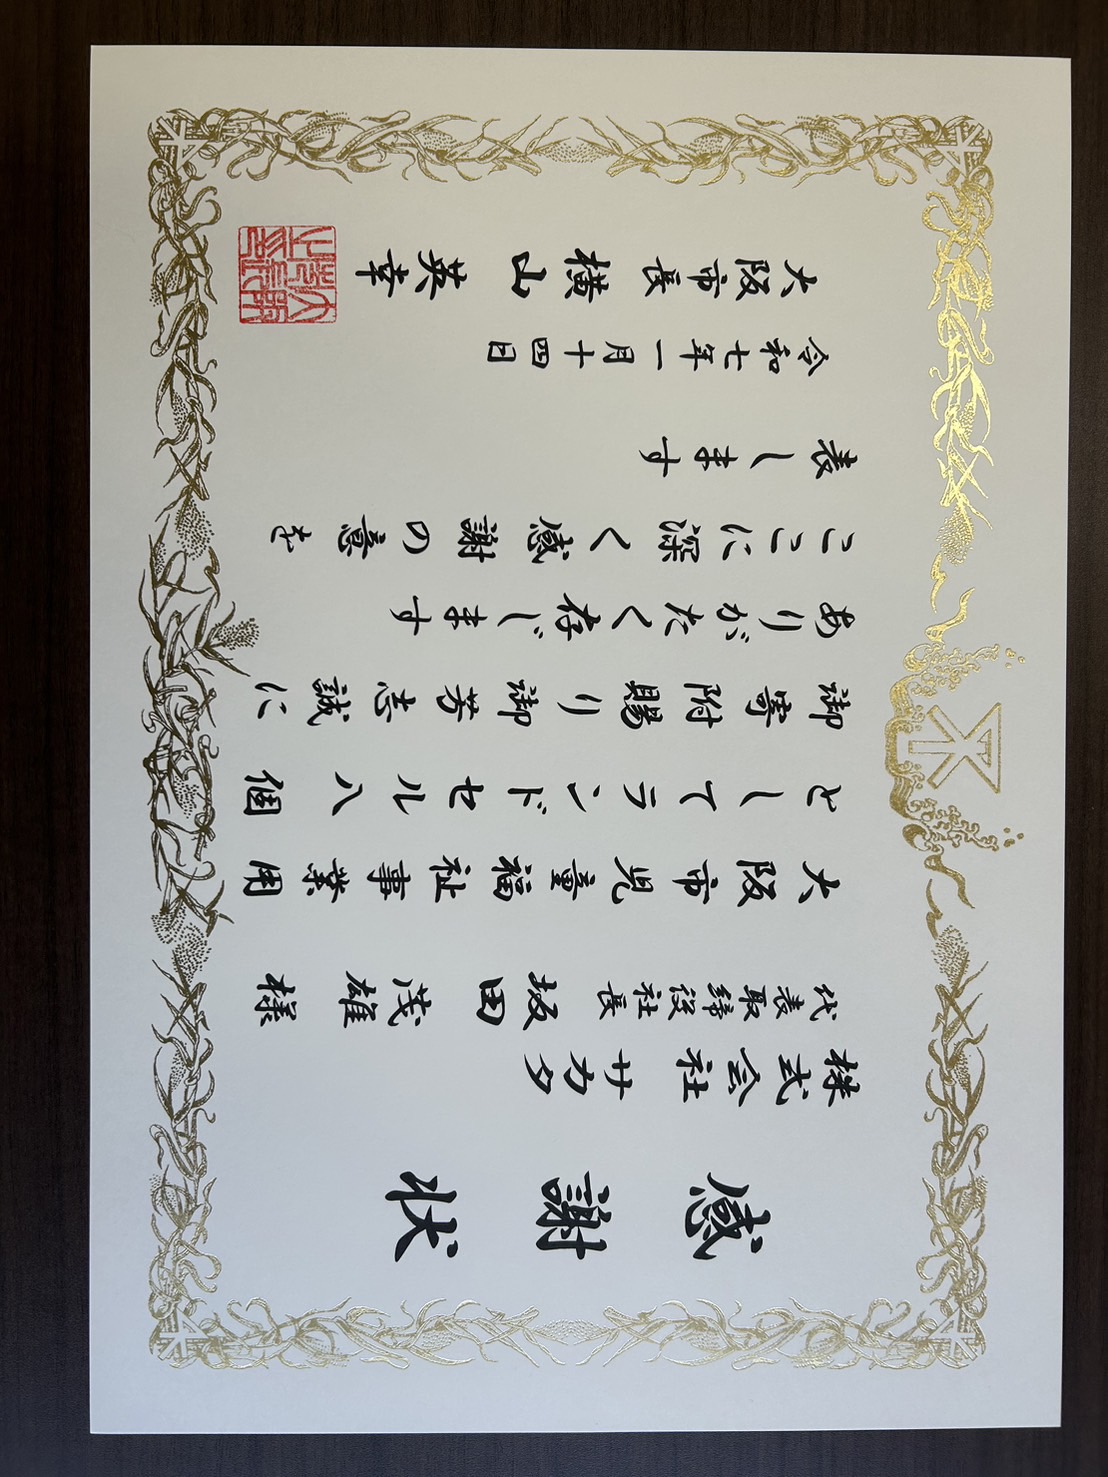 感謝状
株式会社サカタ
代表取締役社長 坂田 茂雄 様
大阪市児童福祉事業用
としてランドセル八個
御寄附賜り御芳志誠に
ありがたく存じます
ここに深く感謝の意を
表します
令和七年一月十四日
大阪市長 横山 英幸